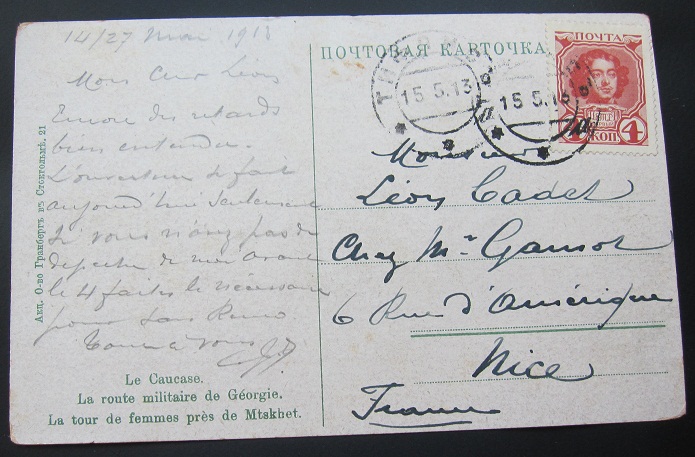 14/27 Mai 1913
Mon cher Léon
Encore des retards
bien entendu.
L'ouverture se fait
aujourd'hui seulement
Si vous n'avez pas de
dépêche de moi avant
le 4 faites le nécessaire
pour San Remo
Tout à vous
Le Caucase.
La route militaire de Géorgie.
La tour de femmes près de Mtskhet.
Акц. О-во Гранбергъ въ Стокгольмѣ. 21
ПОЧТОВАЯ КАРТОЧКА.
15.5.13
15.5.13
ПОЧТА
4 КОП
Monsieur
Léon Cadet
Chez Mr
6 Rue d'Amérique
Nice
France